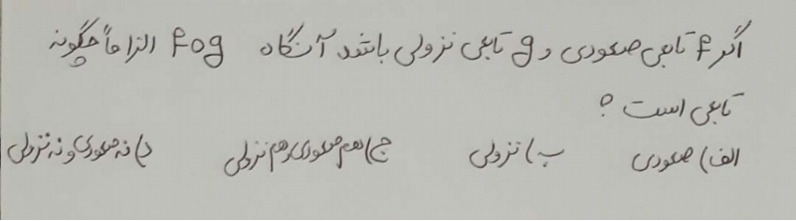 اگر f تابعی صعودی و g تابعی نزولی باشد آنگاه fog الزاماً چگونه
تابعی است ؟
الف) صعودی ب) نزولی ج) هم صعودی هم نزولی د) نه صعودی و نه نزولی